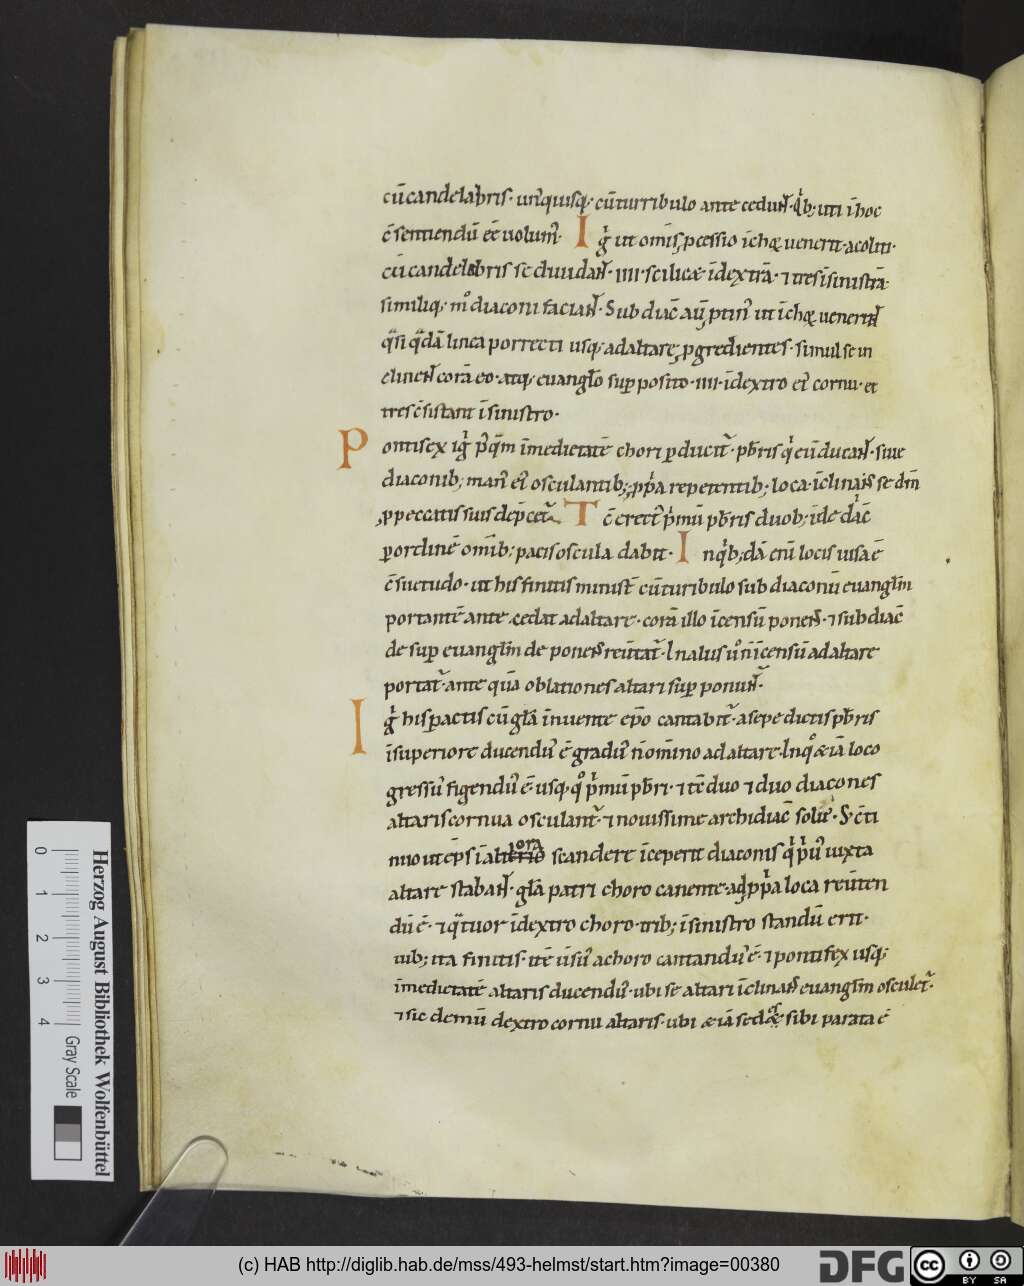 cū candelabris· unꝰquisq; cū turribulo ante cedunt· qͥb; uti ī hoc
c̄ sentiendū eē uolumꝰ· Igͥ ut omīs ꝓcessio ī chorū uenerit· acoliti·
cū candelabris se diuidant· IIII· scilicæ ī dextrā· ⁊ tres ī sinistrā·
similiq; mͦ diaconi faciant· Subdiac̄ aūt ptinꝰ ut ī chorū uenerint
qͣsi qͣdā linea porrecti usq; ad altare ꝓgredientes· simul se in
clinent corā eo· atq; euanglͦo suꝑ posito· IIII· ī dextro eiꝰ cornu· et
tres c̄sistant ī sinistro·
Pontifex igͥ pꝰqͣm ī medietatē chori ꝑducitͬ· pbris qͥ eū ducant· siue
diaconib; manꝰ eiꝰ osculantib; ꝓpͥa repetentib; loca· īclinans se dm̄
ꝓ peccatis suis dep̄cetͬ· Tc̄ erectꝰ pͥmū pbris duob; īde diac̄
ꝑ ordinē omīb; pacis oscula dabit· In qͥb;dā enī locis uisa ē
c̄suetudo· ut his finitis ministͬ cū turibulo subdiaconū euanglīm
portantē ante cedat ad altare· corā illo īcensū ponens· ⁊ subdiac̄
desuꝑ euanglīm deponens reūtatͬ· In alus uͦ n̄ īcensū ad altare
portatͬ· ante quā oblationes altari suꝑ ponuntͬ·
Igͥ his ꝑactis cū glā īnuente epō cantabitͬ· a sepe dictis pbris
ī superiorē ducendꝰ ē gradū n̄ omīno ad altare· In qͦ æiā loco
gressꝰ figendꝰ ē· usq; qͦ pͥmū pbri· ⁊ tē duo ⁊ duo diacones
altaris cornua osculantͬ· ⁊ nouissime archidiac̄ solꝰ· S; c̄ti
nuo ut ep̄s ī altiora scandere īceperit diaconis qͥ pͥuꝰ iuxta
altare stabant· glā patri choro canente· ad ꝓpͥa loca reūten
dū ē· ⁊ qͣtuor ī dextro choro· trib; ī sinistro standū erit·
iub; ita finitis· itē ūsꝰ a choro cantandꝰ ē· ⁊ pontifex usq;
ī medietatē altaris ducendꝰ· ubi se altari īclinans euanglīm osculetͬ·
⁊ sic demū dextro cornu altaris· ubi æiā sedes sibi parata ē
0 1 2 3 4
Herzog August Bibliothek Wolfenbüttel
Gray Scale
(c) HAB http://diglib.hab.de/mss/493-helmst/start.htm?image=00380
DFG
cc BY SA